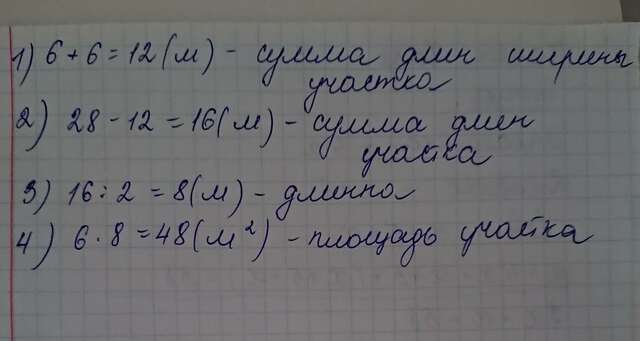 1) 6 + 6 = 12 (м) - сумма длин ширины
участка
2) 28 - 12 = 16 (м) - сумма длин
участка
3) 16 : 2 = 8 (м) - длинна
4) 6 · 8 = 48 (м²) - площадь участка